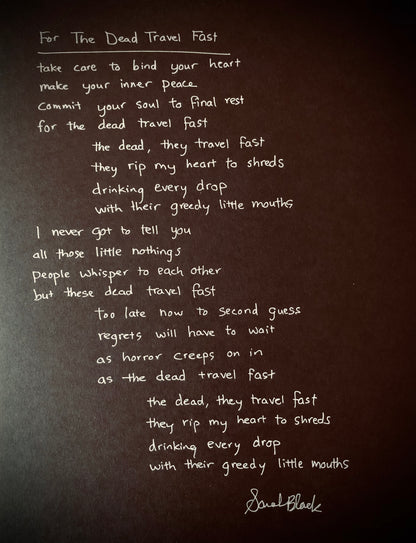 For The Dead Travel Fast
take care to bind your heart
make your inner peace
commit your soul to final rest
for the dead travel fast
the dead, they travel fast
they rip my heart to shreds
drinking every drop
with their greedy little mouths
I never got to tell you
all those little nothings
people whisper to each other
but these dead travel fast
too late now to second guess
regrets will have to wait
as horror creeps on in
as the dead travel fast
the dead, they travel fast
they rip my heart to shreds
drinking every drop
with their greedy little mouths
Sarah Black